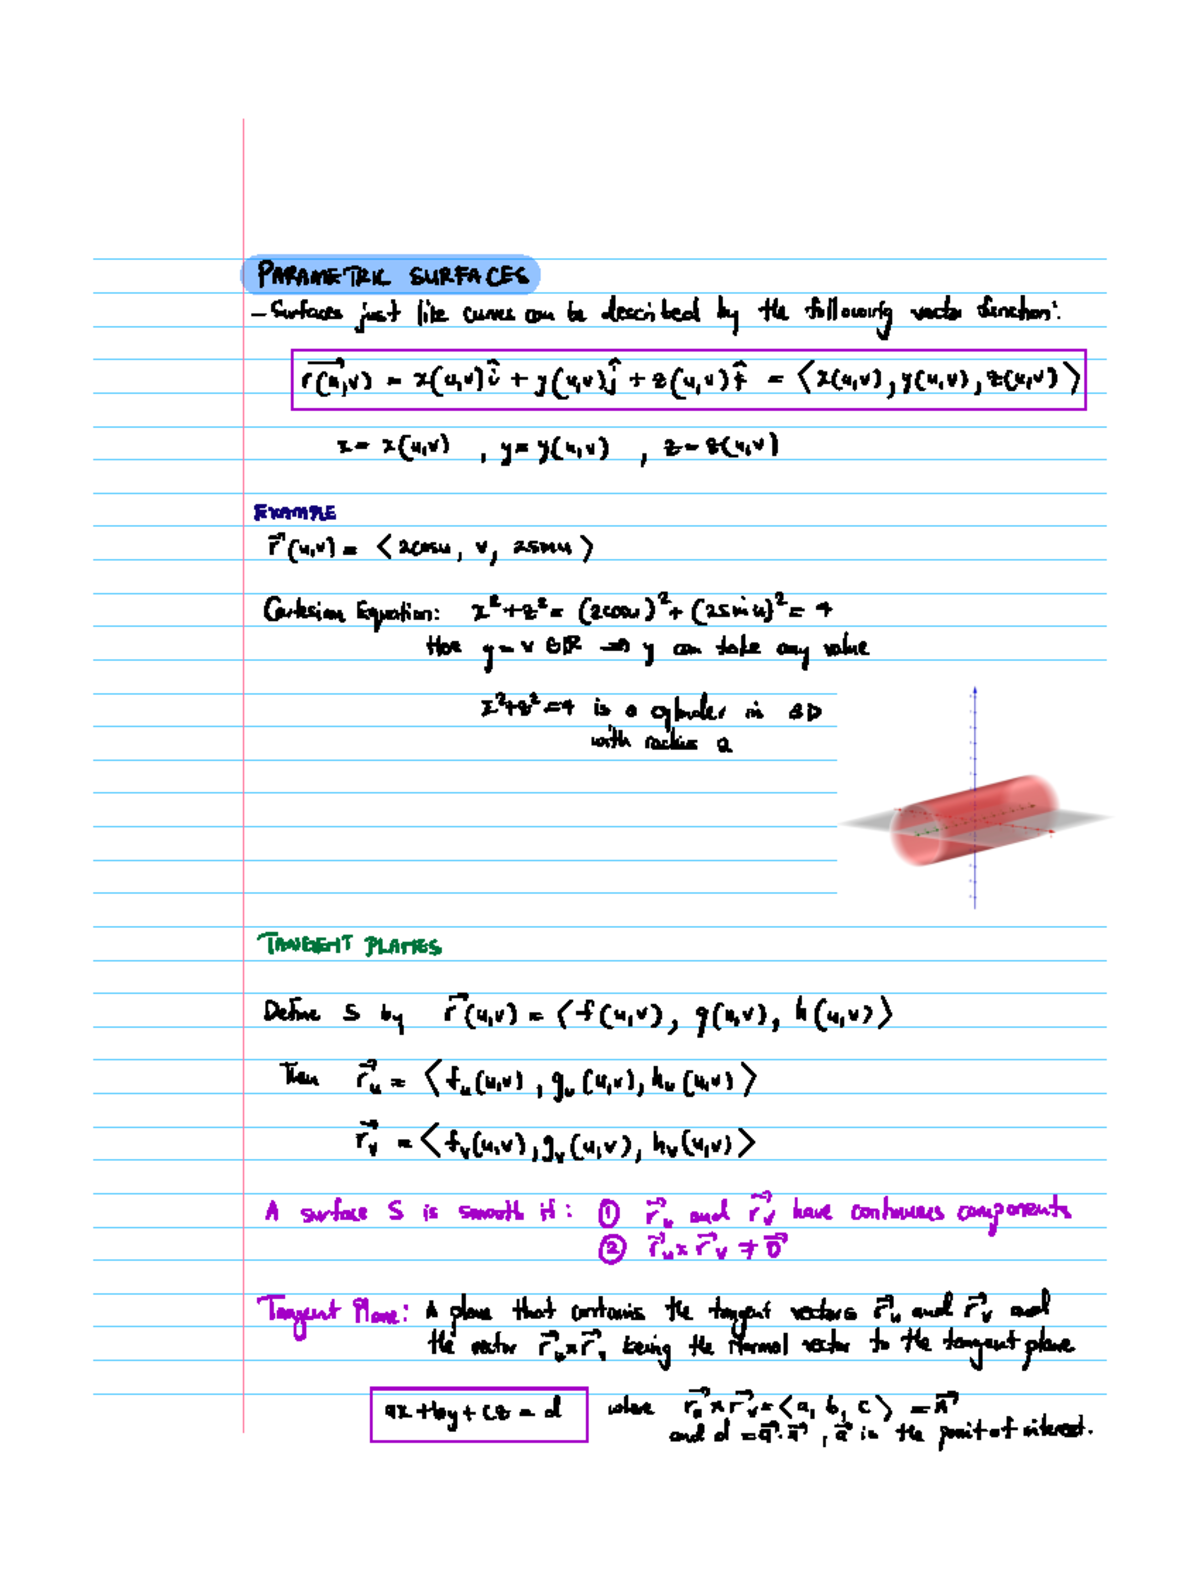 PARAMETRIC SURFACES
– Surfaces just like curves can be described by the following vector function:
r⃗(u,v) = x(u,v)î + y(u,v)ĵ + z(u,v)k̂ = ⟨x(u,v), y(u,v), z(u,v)⟩
x = x(u,v) , y = y(u,v) , z = z(u,v)
EXAMPLE
r⃗(u,v) = ⟨2cosu, v, 2sinu⟩
Cartesian Equation: x² + z² = (2cosu)² + (2sinu)² = 4
Here y = v ∈ ℝ ⇒ y can take any value
x² + z² = 4 is a cylinder in 3D
with radius 2
TANGENT PLANES
Define S by r⃗(u,v) = ⟨f(u,v), g(u,v), h(u,v)⟩
Then r⃗ᵤ = ⟨fᵤ(u,v), gᵤ(u,v), hᵤ(u,v)⟩
r⃗ᵥ = ⟨fᵥ(u,v), gᵥ(u,v), hᵥ(u,v)⟩
A surface S is smooth if: ① r⃗ᵤ and r⃗ᵥ have continuous components
② r⃗ᵤ × r⃗ᵥ ≠ 0⃗
Tangent Plane: A plane that contains the tangent vectors r⃗ᵤ and r⃗ᵥ and
the vector r⃗ᵤ × r⃗ᵥ being the normal vector to the tangent plane
ax + by + cz = d where r⃗ᵤ × r⃗ᵥ = ⟨a, b, c⟩ = n⃗
and d = a⃗·n⃗, a⃗ is the point of interest.